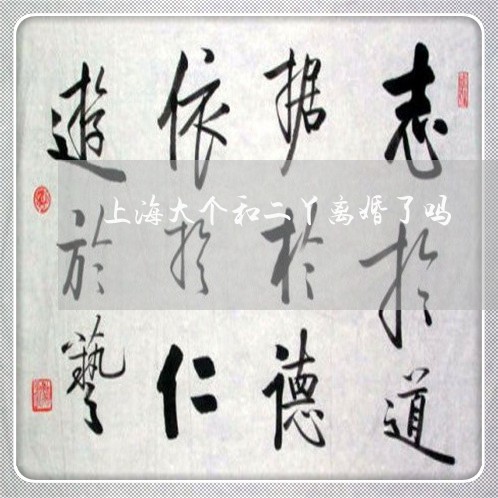 志於道
据於德
依於仁
遊於藝
上海大个和二丫离婚了吗